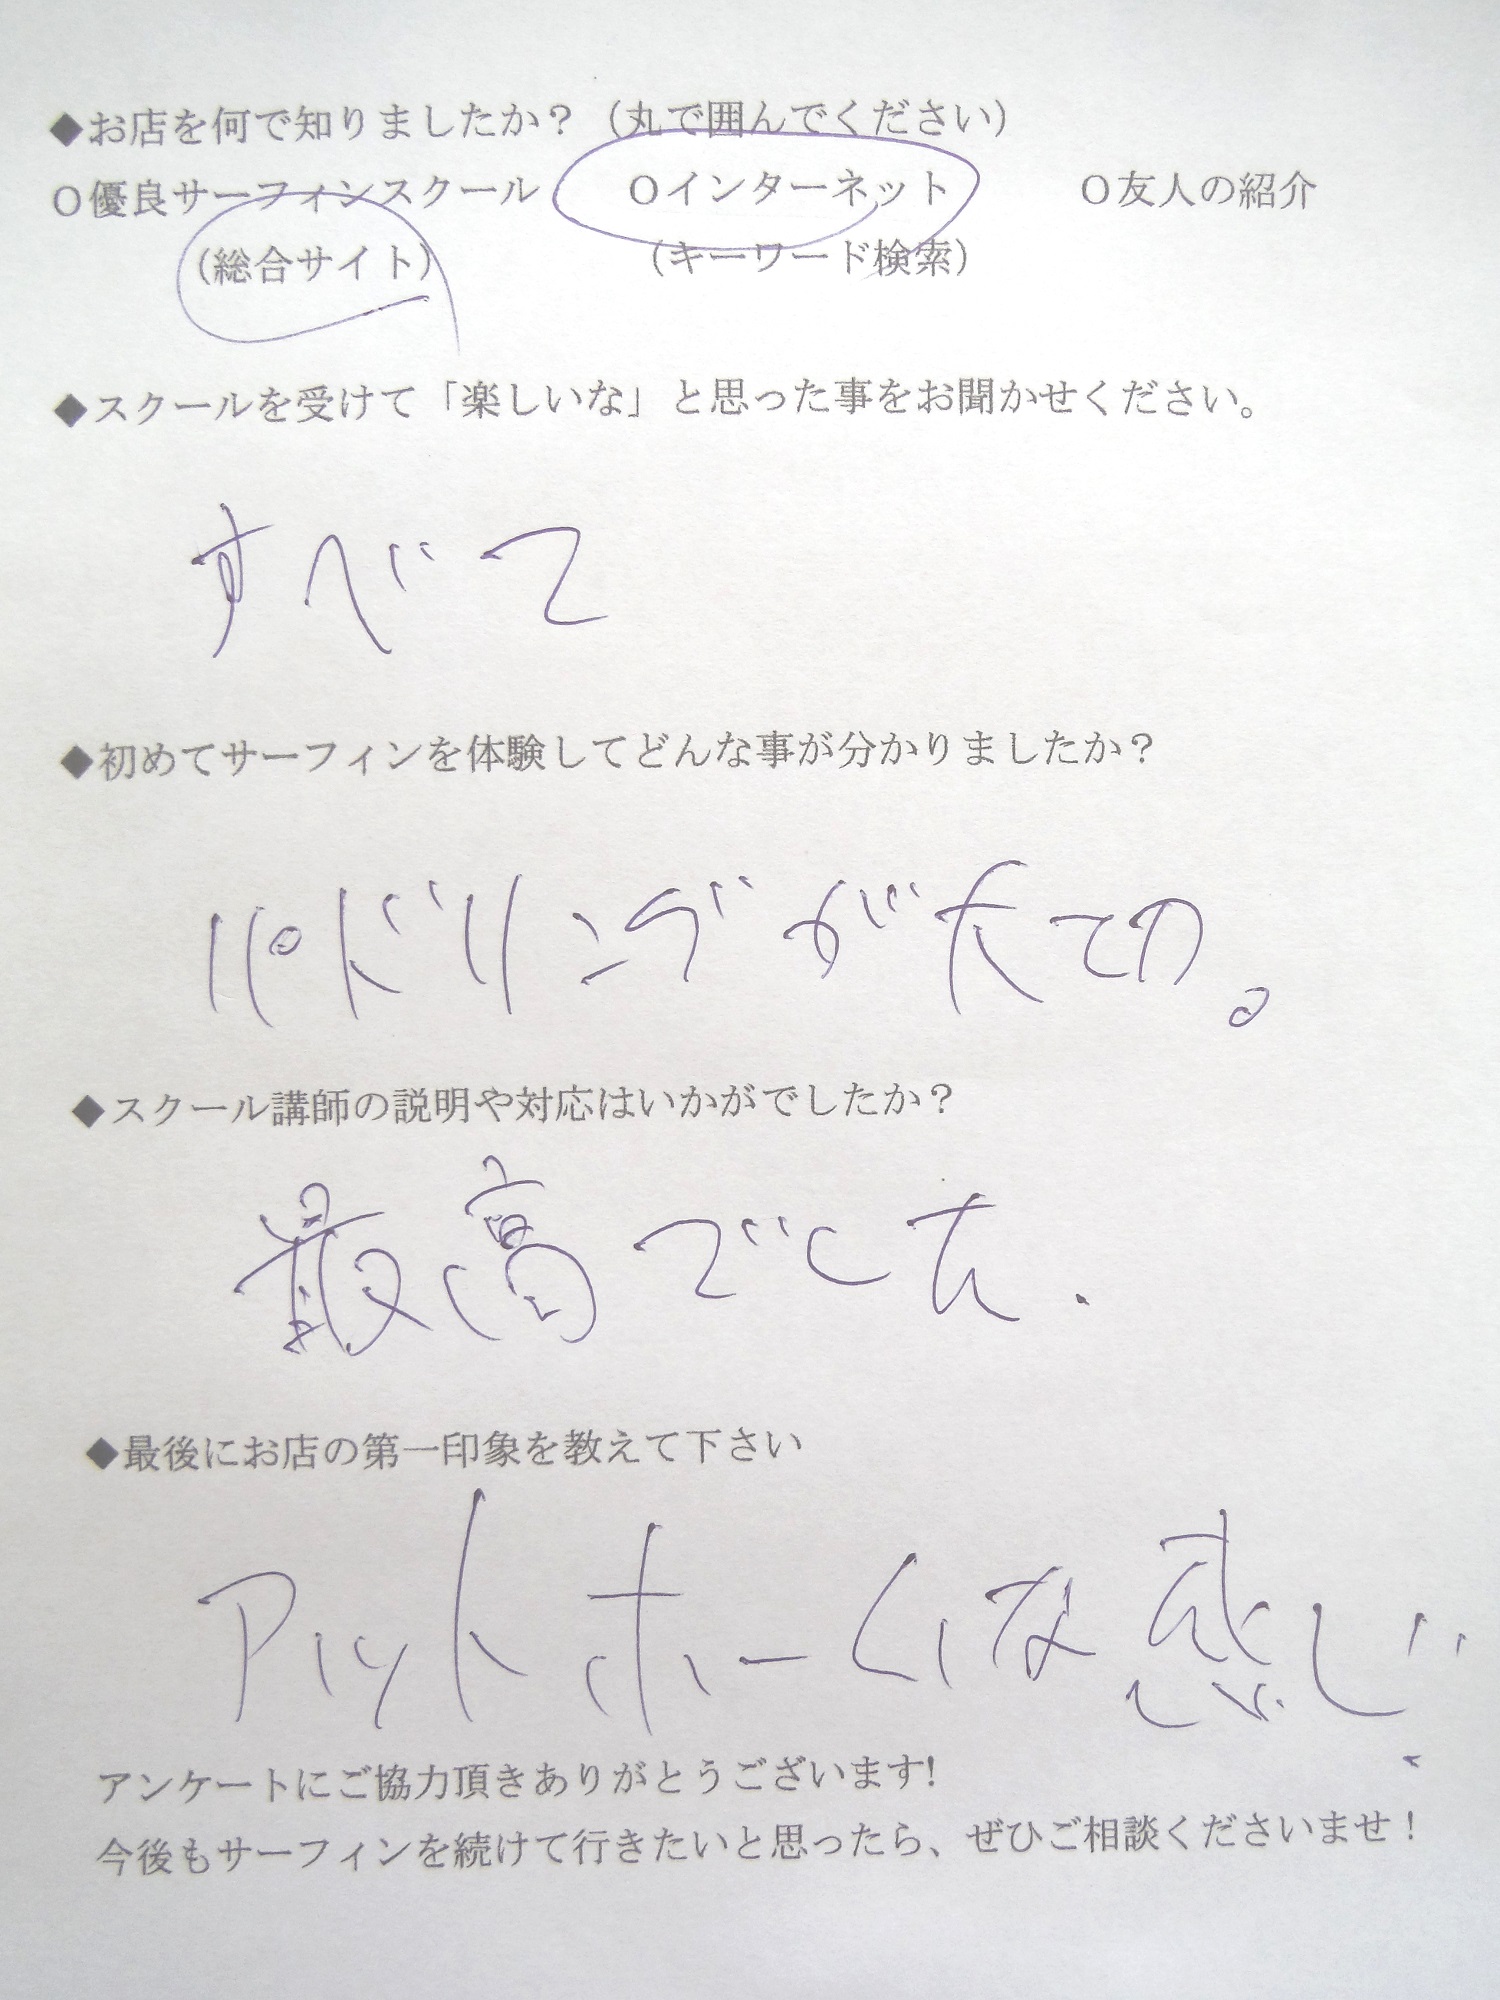 ◆お店を何で知りましたか？（丸で囲んでください）
○優良サーフィンスクール　○インターネット　○友人の紹介
（総合サイト）　（キーワード検索）
◆スクールを受けて「楽しいな」と思った事をお聞かせください。
すべて
◆初めてサーフィンを体験してどんな事が分かりましたか？
パドリングが大事。
◆スクール講師の説明や対応はいかがでしたか？
最高でした.
◆最後にお店の第一印象を教えて下さい
アットホームな感じ
アンケートにご協力頂きありがとうございます!
今後もサーフィンを続けて行きたいと思ったら、ぜひご相談くださいませ！